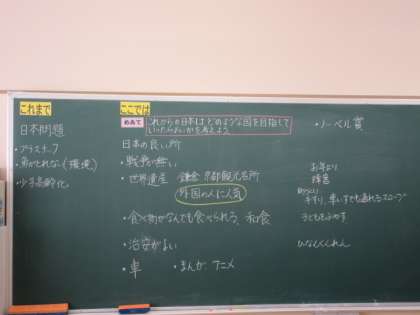 これまで
日本問題
・プラスチック
・魚がとれない(環境)
・少子高齢化
ここでは
めあて
これからの日本はどのような国を目指して
いったらよいかを考えよう
日本の良い所
・戦争が無い
・世界遺産 鎌倉 京都観光名所
外国の人に人気
・食べ物がなんでも食べられる、和食
・治安がよい
・車 ・まんが アニメ
・ノーベル賞
お年より
障害
手すり、車いすでも通れるスロープ
子どもをふやす
ひなんくんれん